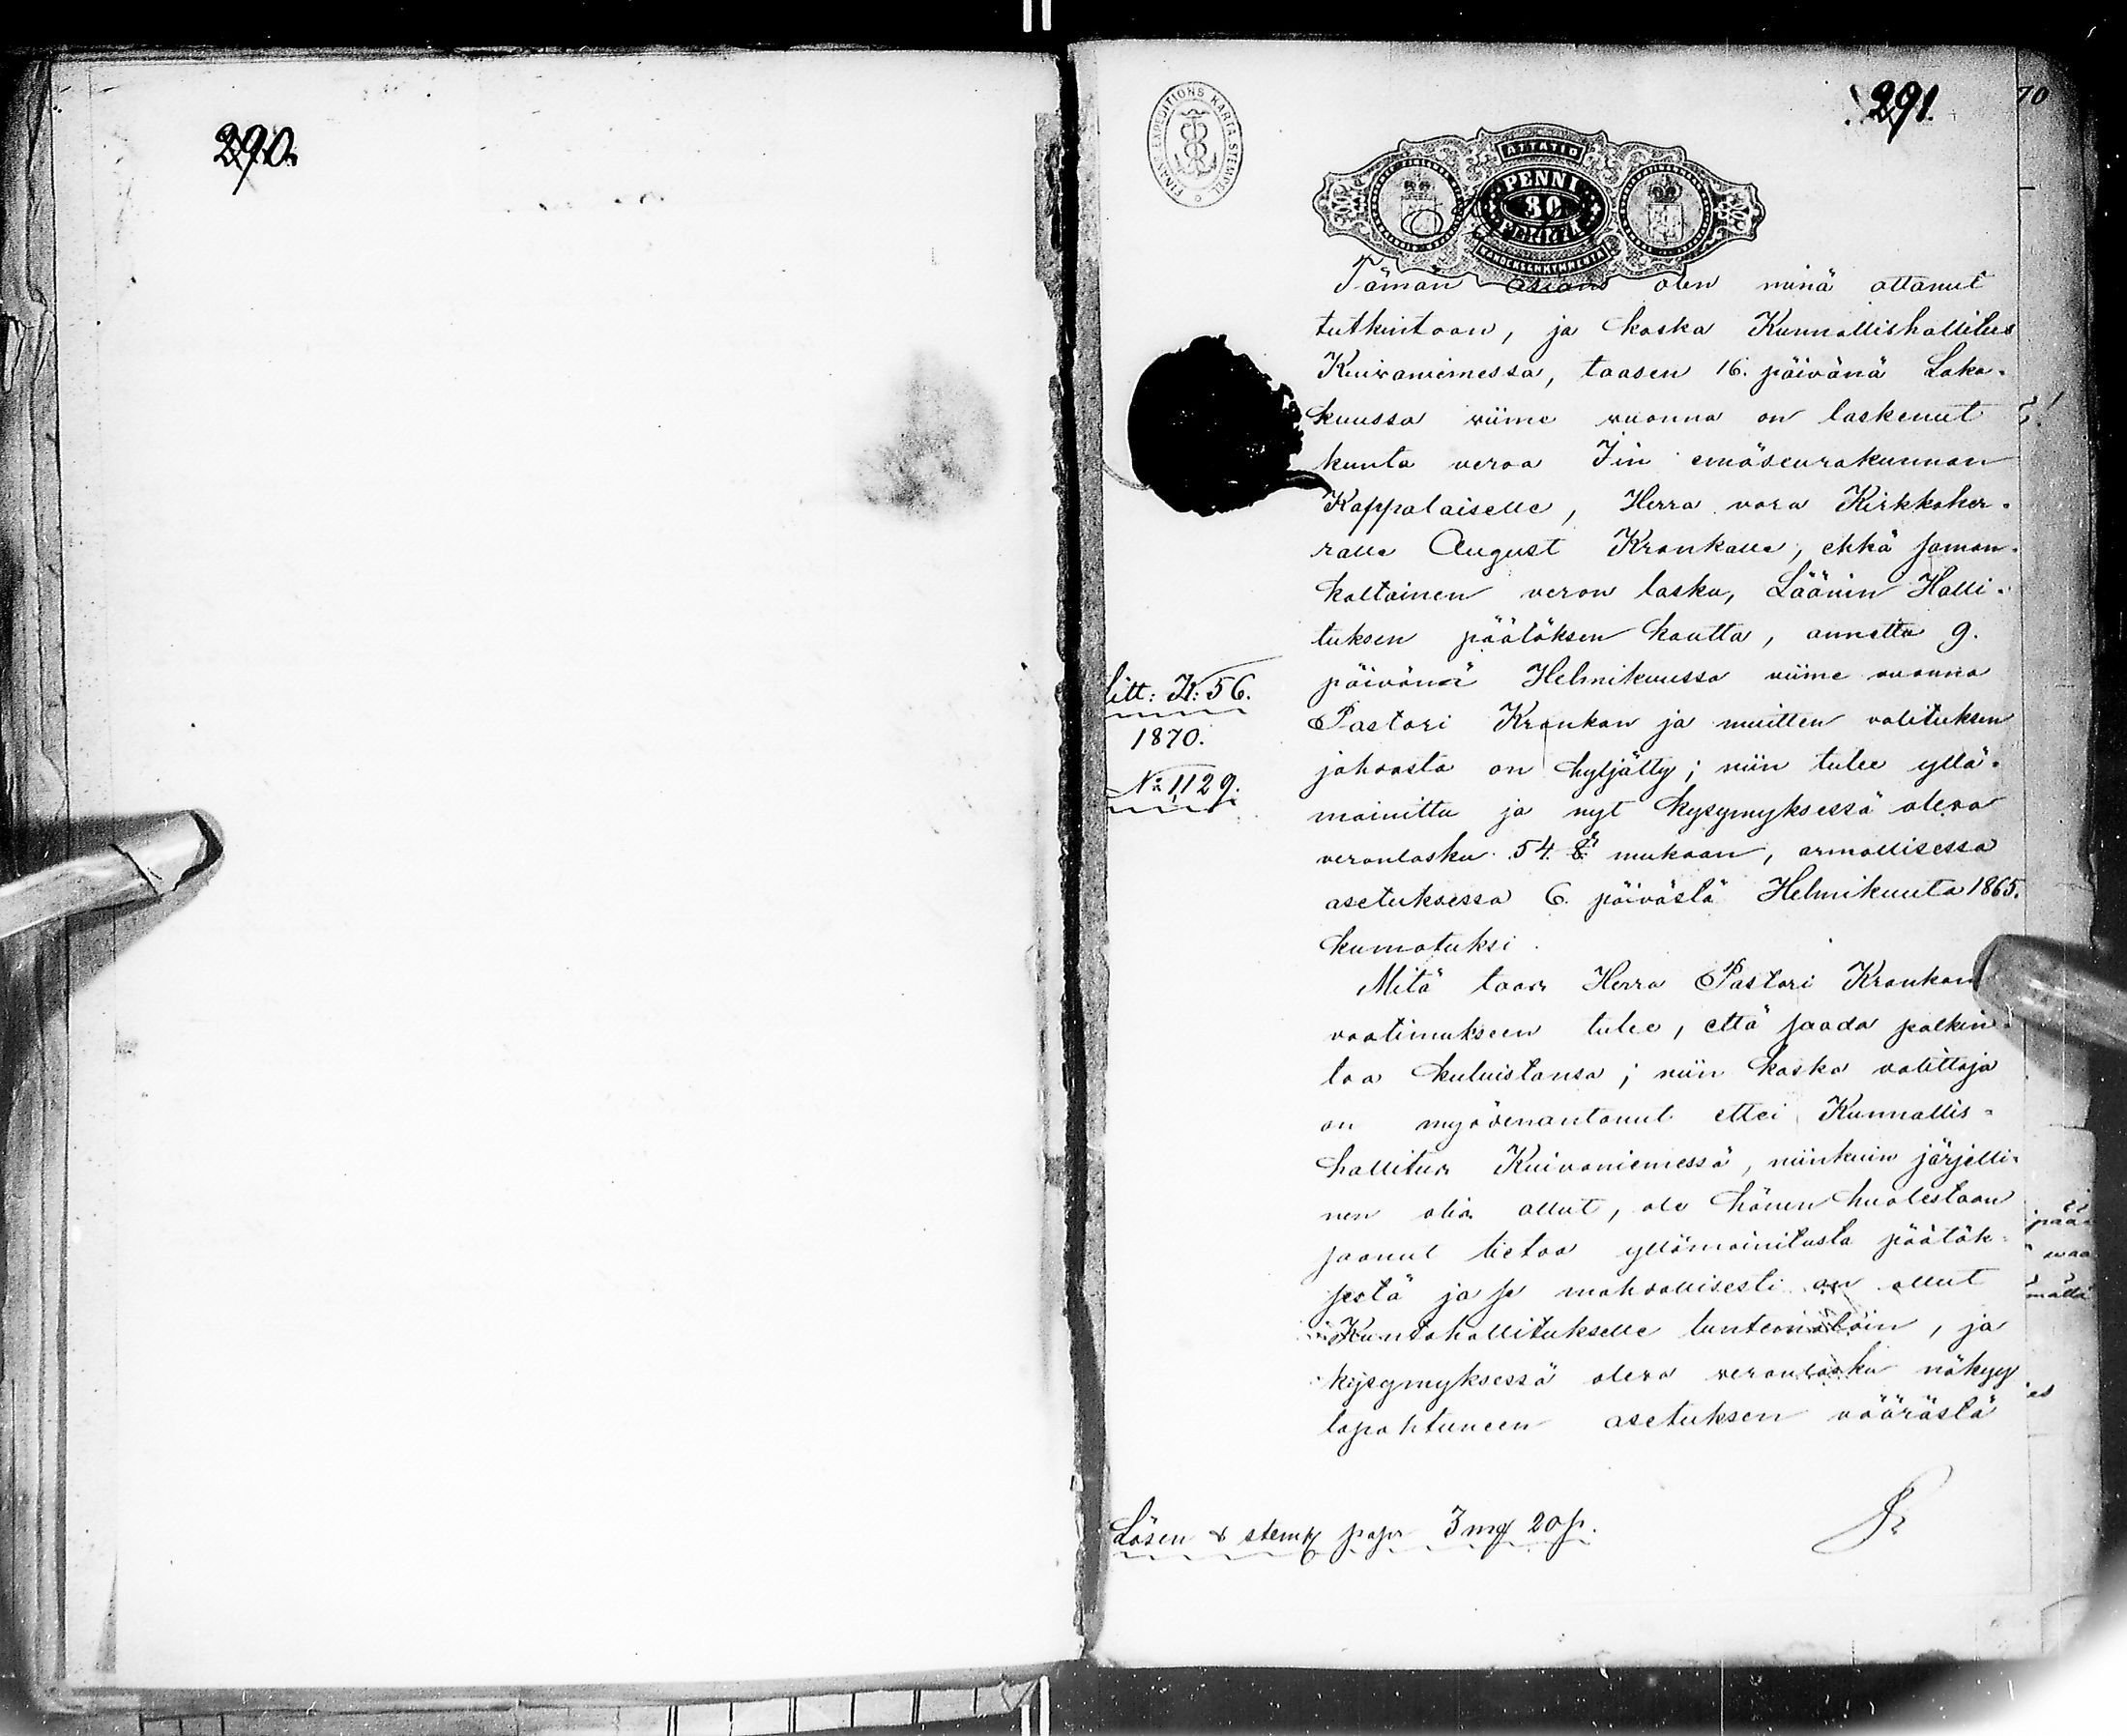 290.
291.
70
FINAN: EXPEDITIONS KARTA STEMPEL
ATTATIO
PENNI
80
KAHDEKSENKYMMENTÄ
Tämän asian olen minä ottanut
tutkintoon, ja koska Kunnallishallitus
Kuivaniemessa, taasen 16. päivänä Loka-
kuussa viime vuonna on laskenut
kunta veroa Iin emäseurakunnan
Kappalaiselle, Herra vara Kirkkoher-
ralle August Krankalle, ehkä saman-
kaltainen veron lasku, Läänin Halli-
tuksen päätöksen kautta, annettu 9.
päivänä Helmikuussa viime vuonna
Pastori Krankan ja muitten valituksen
johdosta on hyljätty; niin tulee yllä-
mainittu ja nyt kysymyksessä oleva
veronlasku 54. §:n mukaan, armollisessa
asetuksessa 6. päivästä Helmikuuta 1865.
kumotuksi.
Mitä taas Herra Pastori Krankan
vaatimukseen tulee, että saada palkin-
toa kuluistansa; niin koska valittaja
on myödenantanut ettei Kunnallis-
hallitus Kuivaniemessä, niinkuin järjelli-
nen olis ollut, ole hänen huolestaan
saanut tietoa yllämainitusta päätök-
sestä ja se mahdollisesti on ollut
Kuntahallitukselle tuntematoin, ja
kysymyksessä oleva veronlasku näkyy
tapahtuneen asetuksen väärästä
Litt: K: 56.
1870.
No 1129.
Lösen & stemp papr 3 mk 20 p.